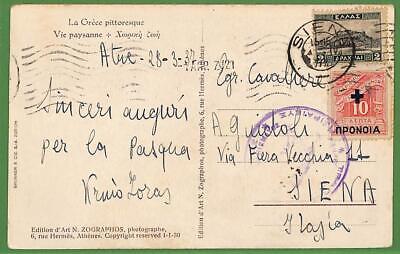 La Grèce pittoresque
Vie paysanne + Χωρικὴ ζωή
28-3-37
Sinceri auguri
per la Pasqua
Edition d'Art N. ZOGRAPHOS, photographe,
6, rue Hermès, Athènes. Copyright reserved 1-1-30
BRUNNER & CIE. S.A. ZURICH
Edition d'Art N. Zographos, photographe, 6, rue Hermès
SIENA
ΕΛΛΑΣ
2 ΔΡΑΧΜΑΙ 2
10
ΛΕΠΤΑ
ΠΡΟΝΟΙΑ
Cavaliere
A.
Via Vecchia 11
SIENA